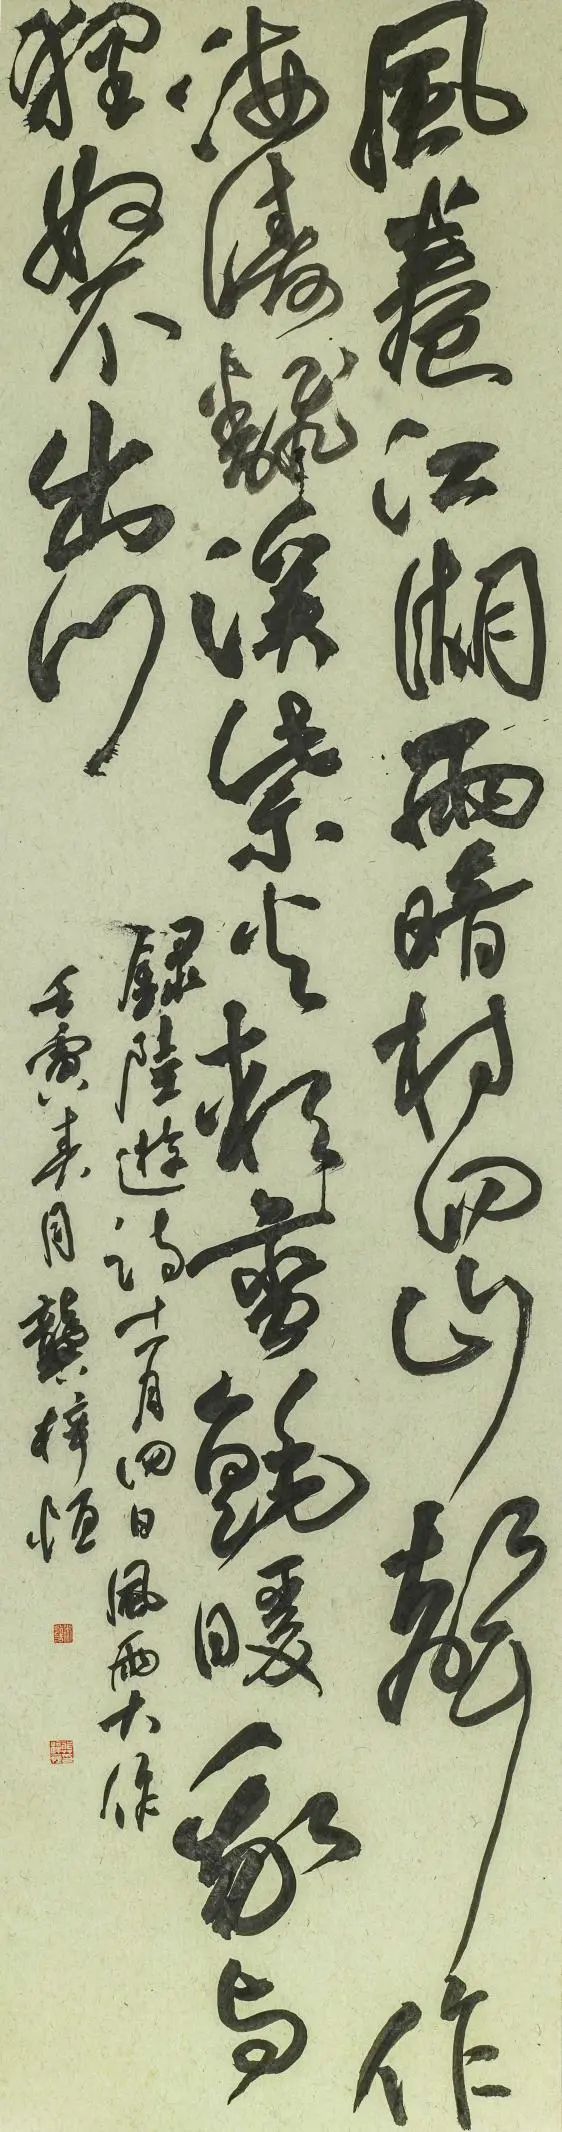 風卷江湖雨暗村四山聲作
海濤翻溪柴火軟蠻氈暖我与
狸奴不出門
錄陸遊詩十一月四日風雨大作
壬寅春月龔梓恒